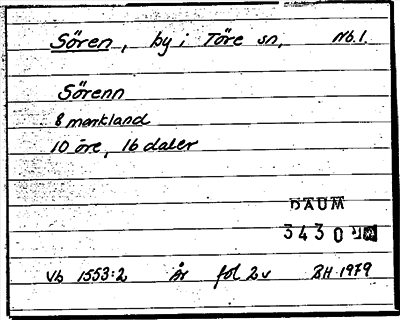 Sören, by i Töre sn, Nb.1.
Sörenn
8 markland
10 öre, 16 daler
DAUM
3430
Vb 1553:2 År fol 2v BH 1979